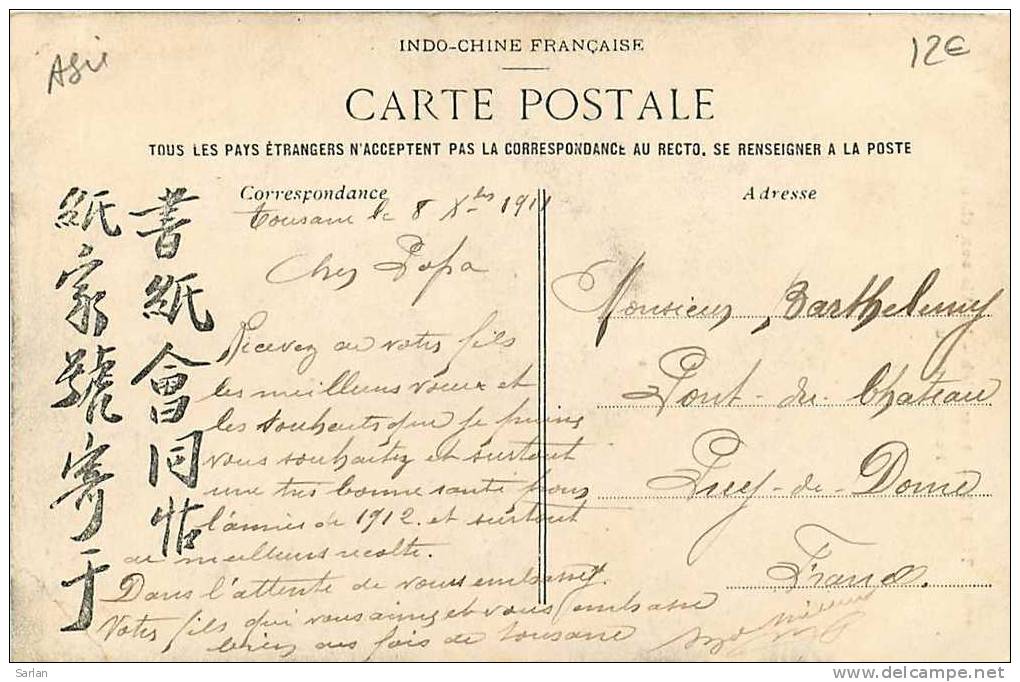 Asie
12€
INDO-CHINE FRANÇAISE
CARTE POSTALE
TOUS LES PAYS ÉTRANGERS N'ACCEPTENT PAS LA CORRESPONDANCE AU RECTO. SE RENSEIGNER A LA POSTE
Correspondance
Adresse
書紙會同帖
紙家號寄于
le 8 Xbre 1911
Cher Papa
Recevez de votre fils
les meilleurs vœux et
les souhaits que je puine
vous souhaitez et surtout
une tres bonne santé pour
l'année de 1912. et surtout
de meilleurs recolte.
Dans l'attente de vous embrasser
Votre fils qui vous aime et vous embrasse
bien des fois de
Monsieur Barthelemy
Pont-du-Chateau
Puy-de-Dome
France.
Sarlan
www.delcampe.net